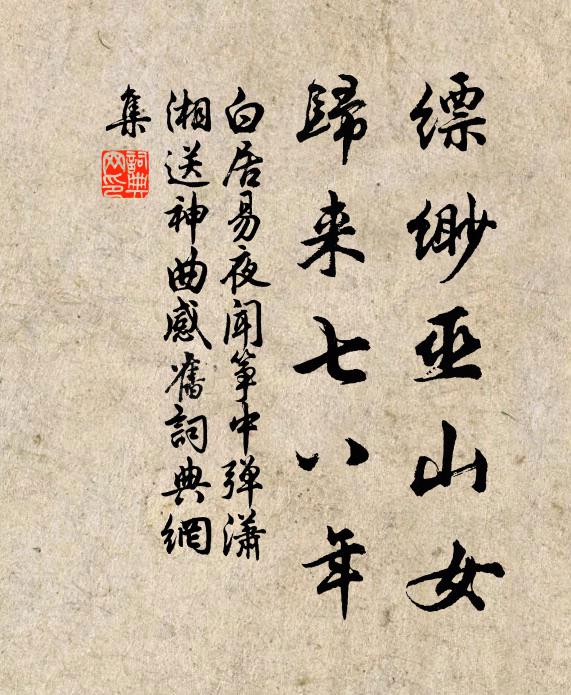 缥缈巫山女
歸来七八年
白居易夜闻筝中弹瀟
湘送神曲感舊詞典網
集
詞典
网印